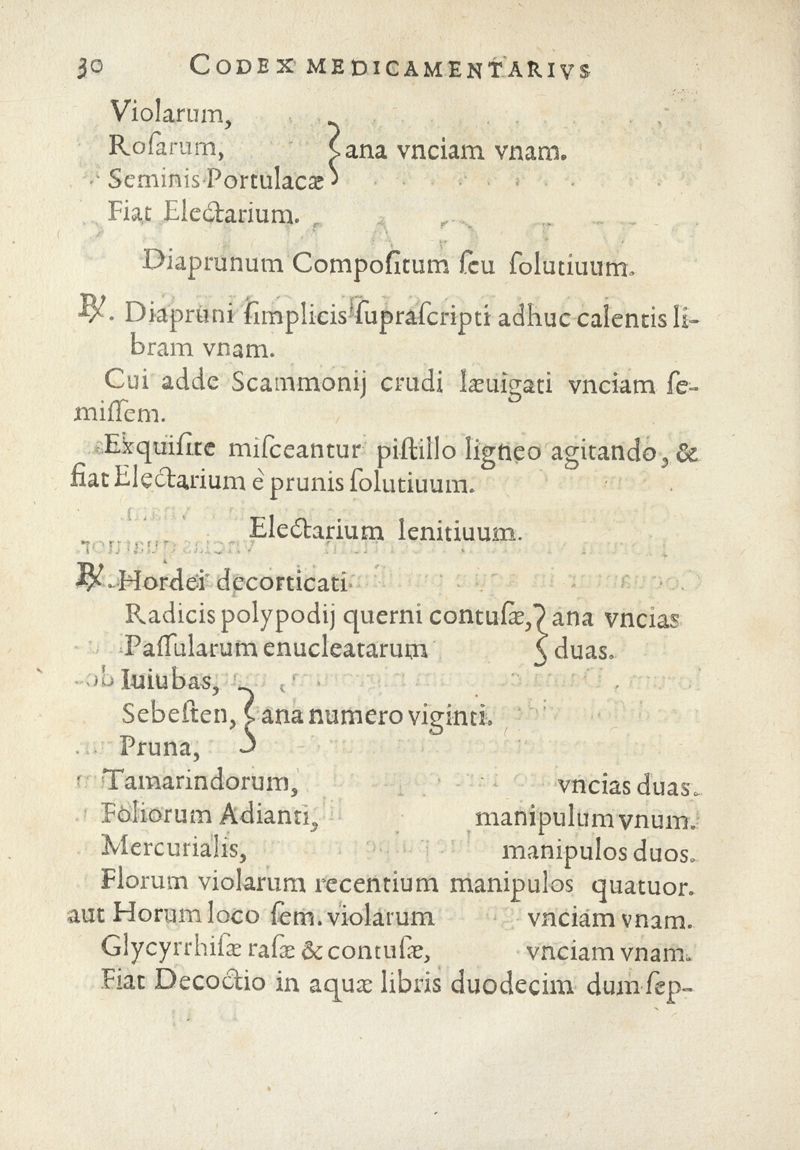 30 CODEX MEDICAMENTARIVS
Violarum,
Roſarum, } ana vnciam vnam.
Seminis Portulacæ
Fiat Electarium.
Diaprunum Compoſitum ſeu ſolutiuum.
℞. Diapruni ſimplicis ſupraſcripti adhuc calentis li-
bram vnam.
Cui adde Scammonij crudi læuigati vnciam ſe-
miſſem.
Exquiſite miſceantur piſtillo ligneo agitando, &
fiat Electarium è prunis ſolutiuum.
Electarium lenitiuum.
℞. Hordei decorticati
Radicis polypodij querni contuſæ, } ana vncias
Paſſularum enucleatarum } duas.
Iuiubas,
Sebeſten, } ana numero viginti.
Pruna,
Tamarindorum, vncias duas.
Foliorum Adianti, manipulum vnum.
Mercurialis, manipulos duos.
Florum violarum recentium manipulos quatuor.
aut Horum loco ſem. violarum vnciam vnam.
Glycyrrhiſæ raſæ & contuſæ, vnciam vnam.
Fiat Decoctio in aquæ libris duodecim dum ſep-